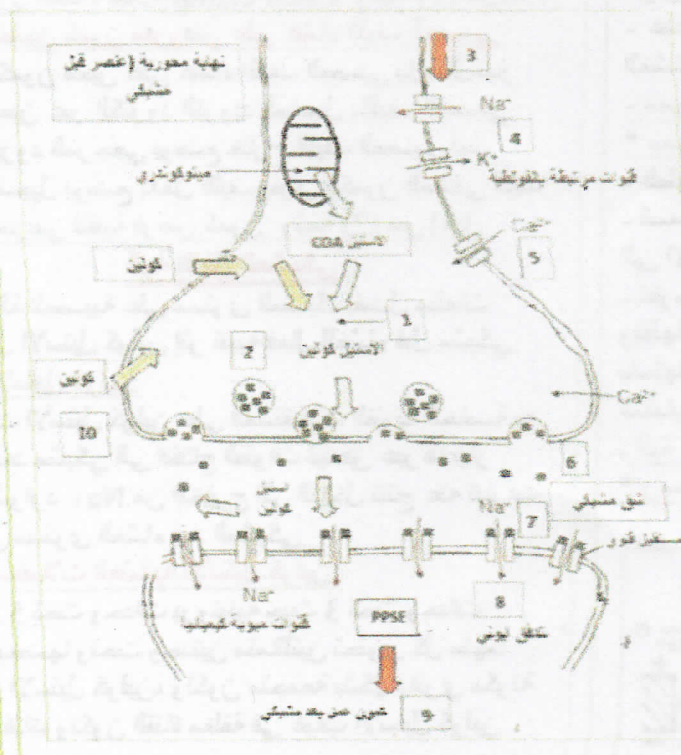 نهاية محورية (عنصر قبل
مشبكي
3
Na⁺
4
K⁺
قنوات مرتبطة بالفولطية
ميتوكوندري
الأستيل COA
Ca²⁺
5
كولين
1
الأستيل كولين
2
كولين
Ca²⁺
10
6
شق مشبكي
أستيل
كولين
Na⁺
7
مستقبل قنوي
Na⁺
قنوات مبوبة كيميائيا
PPSE
8
تدفق أيوني
9